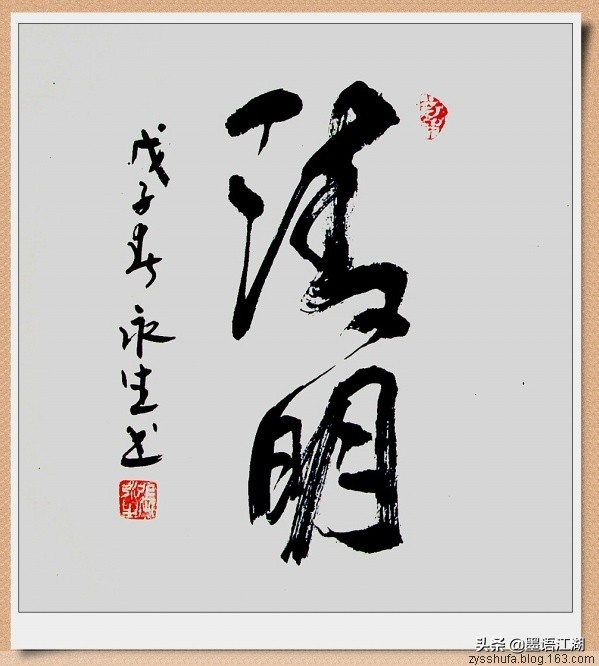 清明
戊子春 永生书
头条 @墨语江湖
zysshufa.blog.163.com